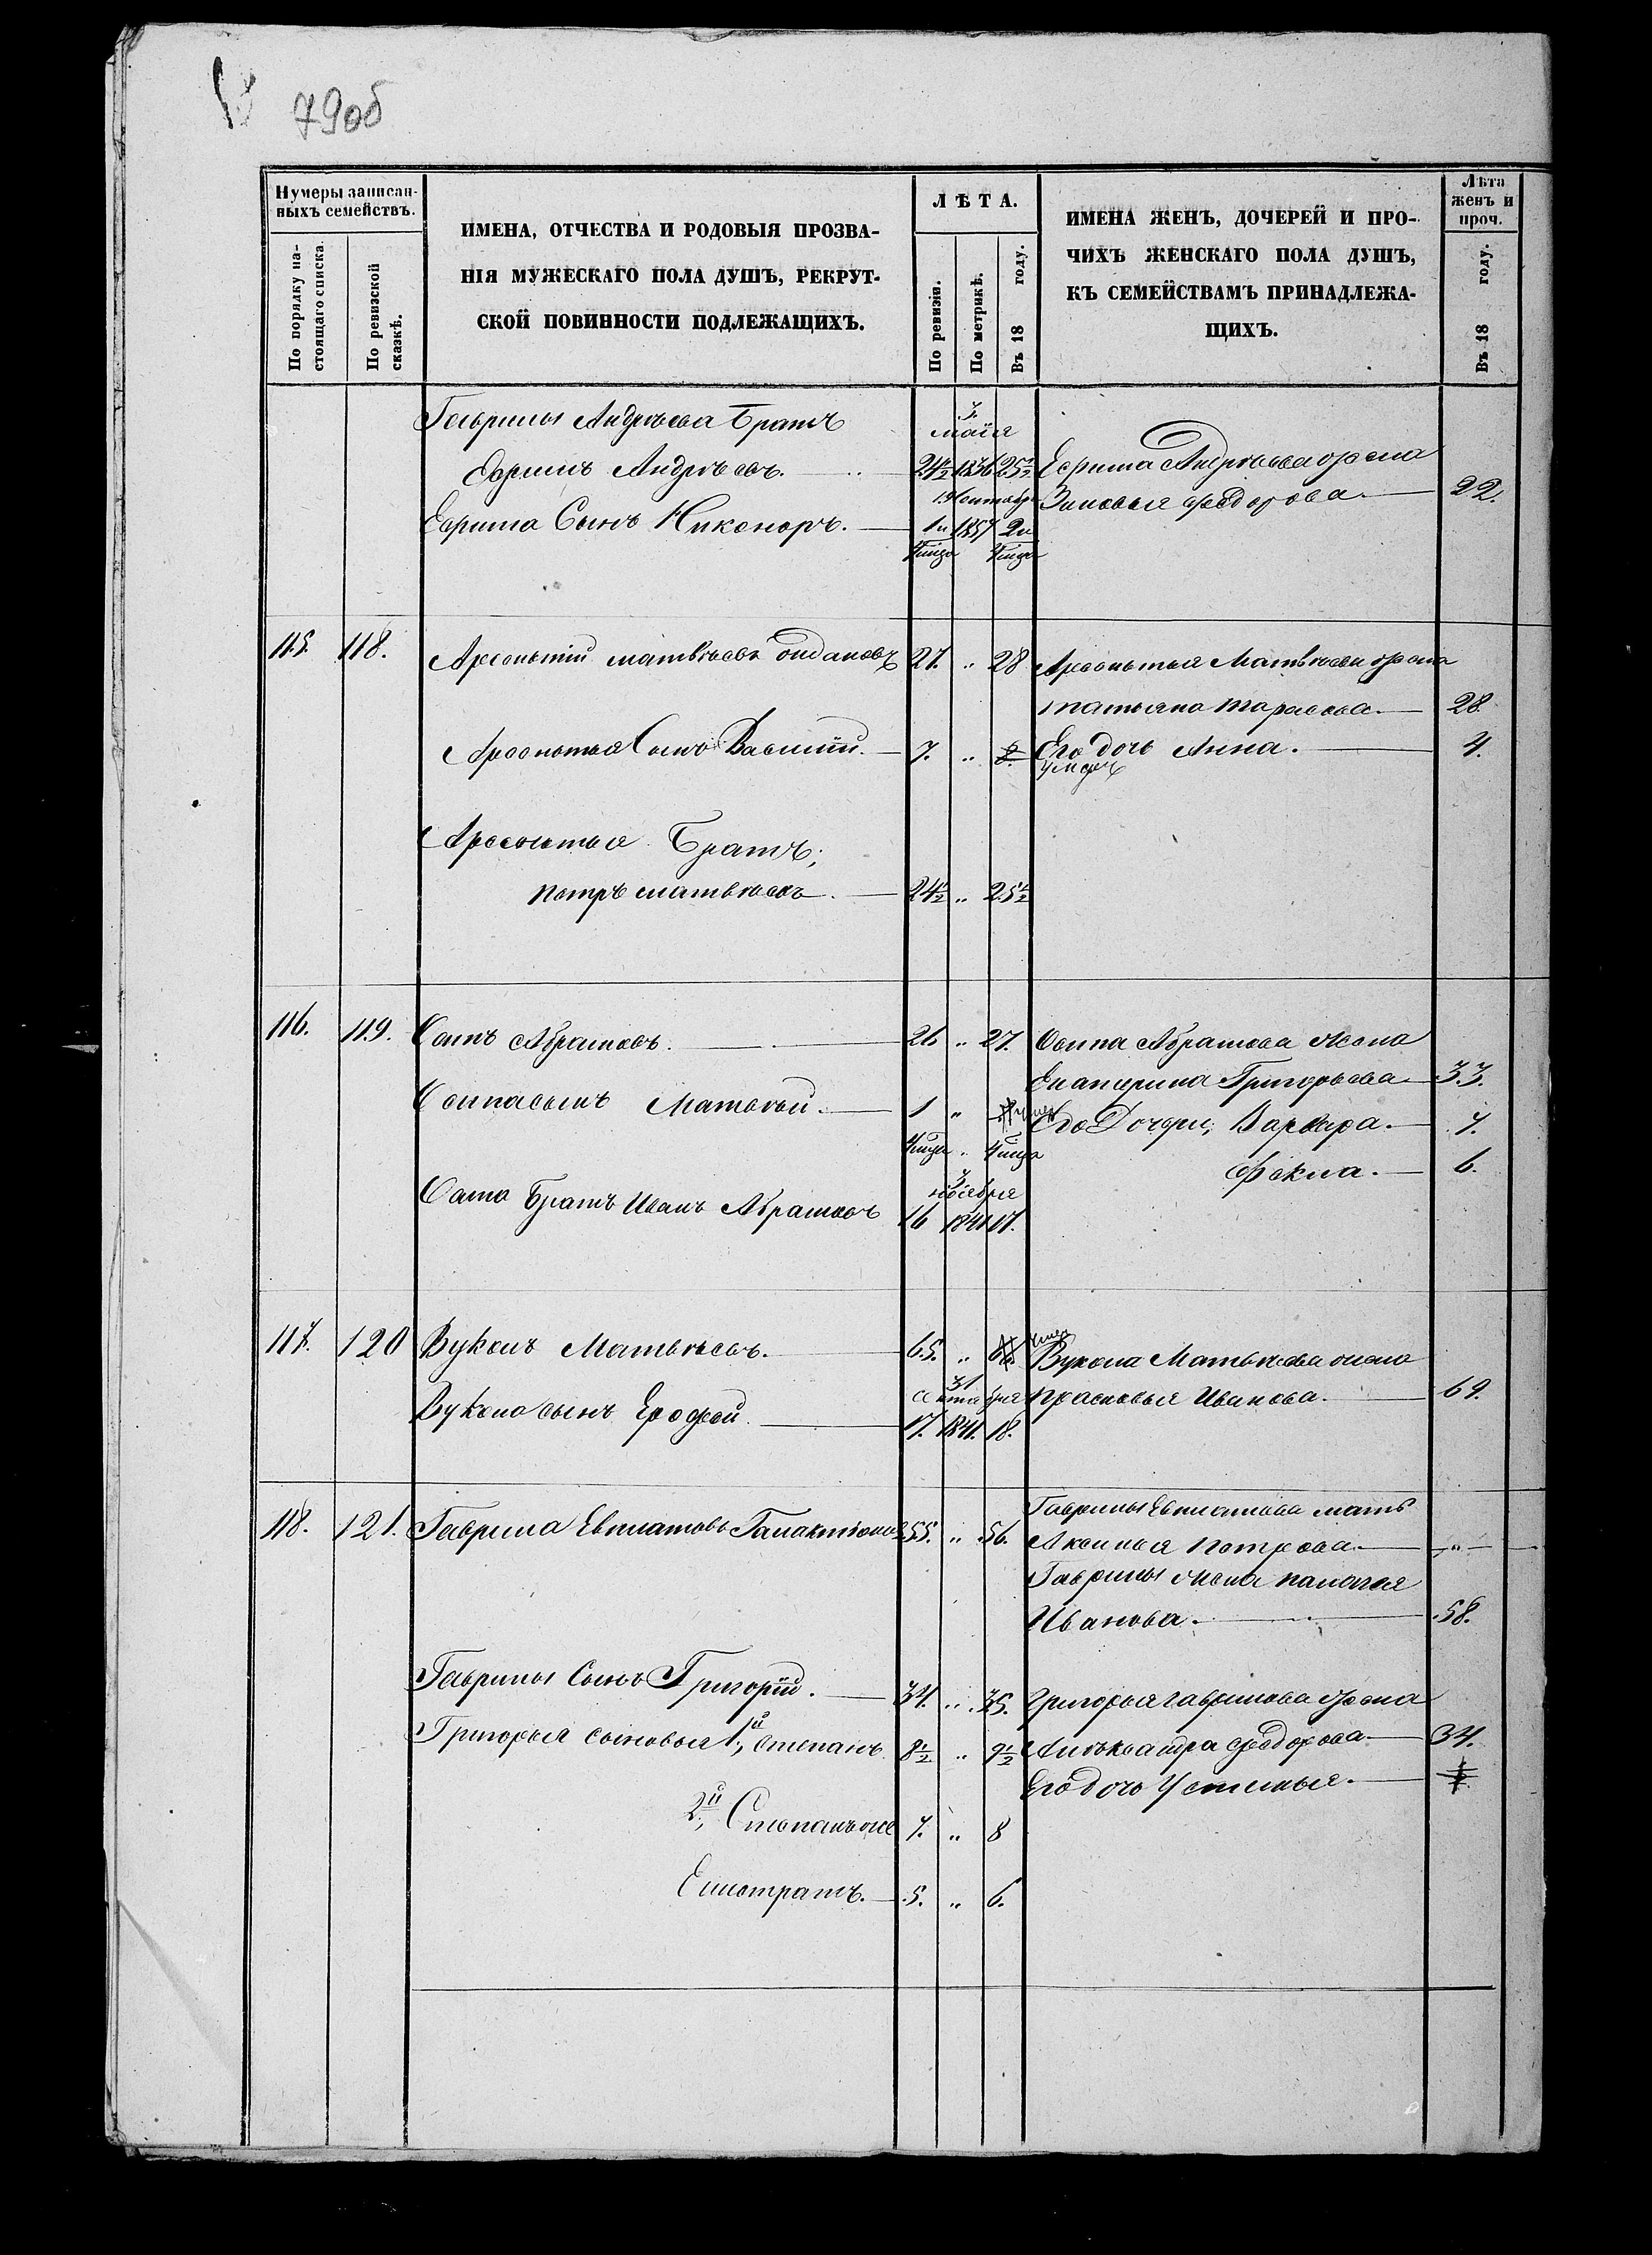 79об
Нумеры записан-
ныхъ семействъ.
По порядку на-
стоящаго списка.
По ревизской
сказкѣ.
ИМЕНА, ОТЧЕСТВА И РОДОВЫЯ ПРОЗВА-
НІЯ МУЖЕСКАГО ПОЛА ДУШЪ, РЕКРУТ-
СКОЙ ПОВИННОСТИ ПОДЛЕЖАЩИХЪ.
ЛѢТА.
По ревизіи.
По метрикѣ.
Въ 18 году.
ИМЕНА ЖЕНЪ, ДОЧЕРЕЙ И ПРО-
ЧИХЪ ЖЕНСКАГО ПОЛА ДУШЪ,
КЪ СЕМЕЙСТВАМЪ ПРИНАДЛЕЖА-
ЩИХЪ.
Лѣта
женъ и
проч.
Въ 18 году.
Гаврилы Андрѣева Братъ
маія
Ефримъ Андрѣевъ. 24½ 1836 25½
Ефрима Андрѣева жена
Зиновья Федорова. 22.
Ефрима Сынъ Никоноръ. 1 и 1857 2 и
115. 118. Арсентій Матвѣевъ 27. " 28
Арсентья Матвѣева жена
Татьяна Тарасова. 28.
Арсентья Сынъ Василій. 7. " 8.
умеръ
Его дочь Анна. 4.
Арсентья Братъ;
Петръ Матвѣевъ. 24½ " 25½
116. 119. Осипъ Абрамовъ. 26 " 27.
Осипа Абрамова жена
Екатерина Григорьева 33.
Осипа сынъ Матвѣй. 1 "
Его Дочери; Варвара. 7.
Фекла. 6.
ноября
Братъ Иванъ Абрамовъ 16 1841 17.
117. 120 Вуколъ Матвѣевъ. 65. " 66.
умер
Вукола Матвѣева жена
Прасковья Иванова. 69.
31
октября
Вукола сынъ Ерофей. 17. 1841. 18.
118. 121. Гаврила Евплатовъ Галактіоновъ 55. " 56.
Гаврилы Евплатова мать
Аксинья Петрова. "
Гаврилы жена Палагея
Иванова. 58.
Гаврилы Сынъ Григорій. 34. " 35.
Григорья Гаврилова жена
Федорова 34.
Григорья сыновья 1й, Степанъ 8½ " 9½
Его дочь Устинья.
2й, Степанъ же 7. " 8
Елистратъ. 5. " 6.